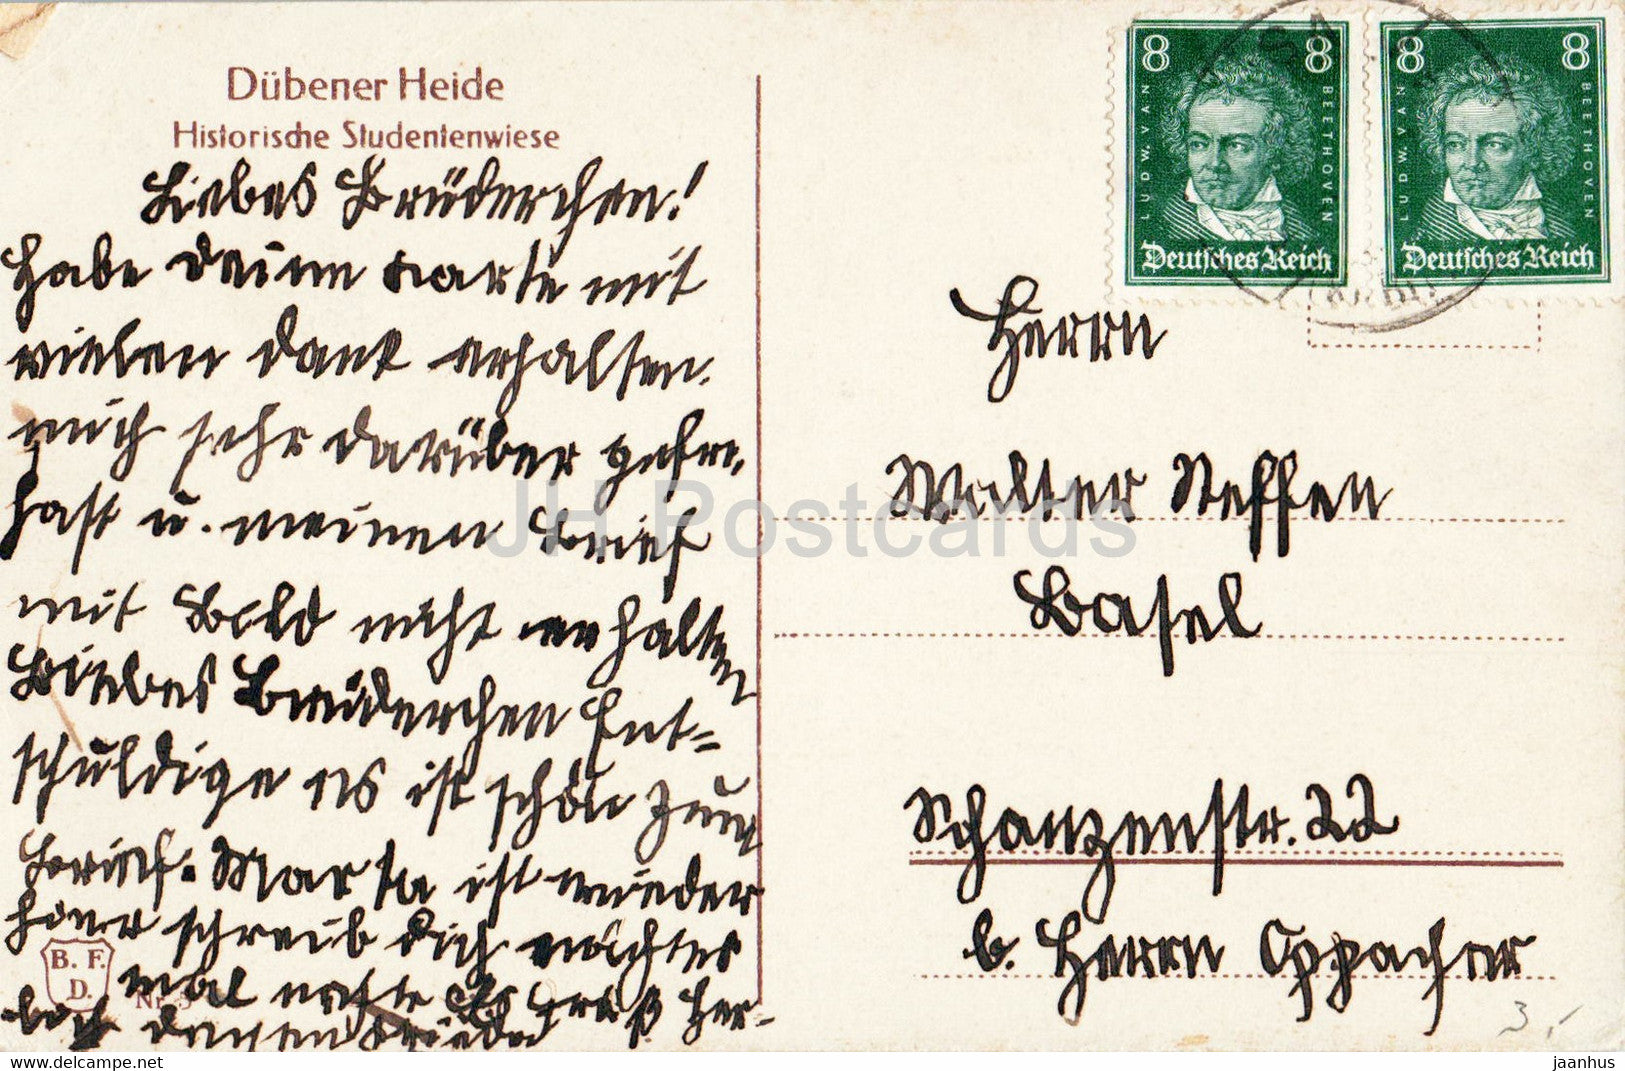 Dübener Heide
Historische Studentenwiese
Liebes Brüderchen!
habe deine Karte mit
vielen dank erhalten.
mich sehr darüber gefre.
hast u. meinen Brief
mit Bild nicht erhalten
Liebes Brüderchen Ent=
schuldige es ist schön zum
Brief. Marta ist wieder
schreib dich nächtes
mal Gruß Her-
deinen
B. F.
D.
Nr. 3
8 8
LUDW. VAN
BEETHOVEN
Deutsches Reich
8 8
LUDW. VAN
BEETHOVEN
Deutsches Reich
Herrn
Walter Steffen
Basel
Schanzenstr. 22
b. Herrn Oppacher
3,-
JH Postcards
www.delcampe.net
jaanhus